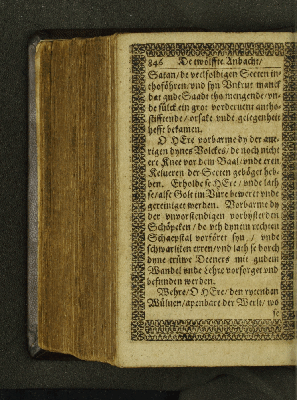 846 De twölffte Andacht/
Satan/ de veelfoldigen Secten in-
thoföhren/ vnd syn Vnkrut manck
dat gude Saadt tho mengende/ vn-
de sülck ein grot vorderuent antho-
stifftende/ orsake vnde gelegenheit
hefft bekamen.
O HEre vorbarme dy der
rigen dynes Volckes/ de noch nicht
ere Knee vor dem Baal/ vnde eren
Kelueren der Secten geböget heb-
ben. Erholde se HEre/ vnde lath
se/ alse Golt im Vüre beweret vnde
gereiniget werden. Vorbarme dy
der vnuorstendigen vorbysterden
Schöpeken/ de vth dynem rechten
Schaepstal vorföret syn / vnde
schwarliken erren/ vnd lath se dorch
dyne trüwe Deeners mit gudem
Wandel vnde Lehre vorsorget vnd
befunden werden.
Wehre/ O HEre/ den
Wüluen/ apenbare der Werlt/ wo
se